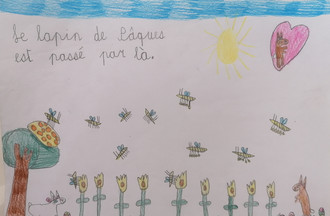 Le lapin de Pâques
est passé par là.